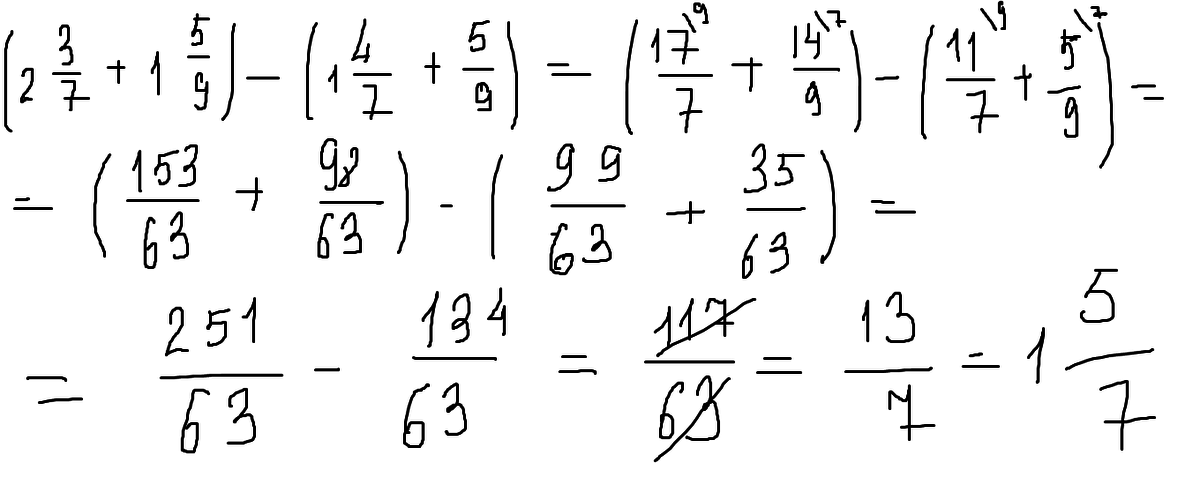 (2 3/7 + 1 5/9) - (1 4/7 + 5/9) = (17\9/7 + 14\7/9) - (11\9/7 + 5\7/9) =
= (153/63 + 98/63) - (99/63 + 35/63) =
= 251/63 - 134/63 = 117/63 = 13/7 = 1 5/7